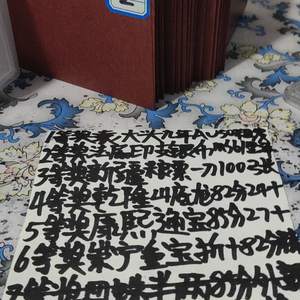 2
1等奖袁大头九年AU50
2等奖法属印支
3等奖新疆票一刀100张
4等奖乾隆82分24+
5等奖康熙通宝85分27+
6等奖崇宁重宝折十82分
7等奖四铢半两85分